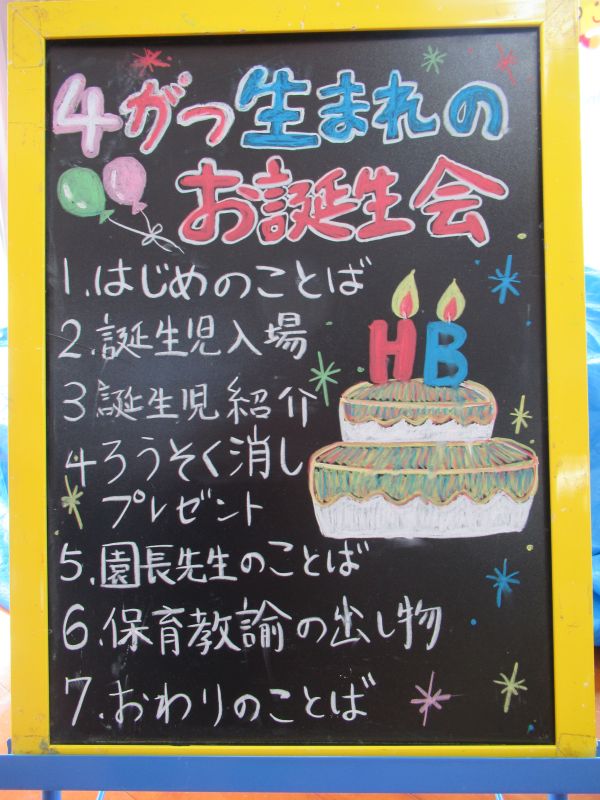 4がつ生まれの
お誕生会
1.はじめのことば
2.誕生児入場
3誕生児紹介
4ろうそく消し
プレゼント
5.園長先生のことば
6.保育教諭の出し物
7.おわりのことば
HB